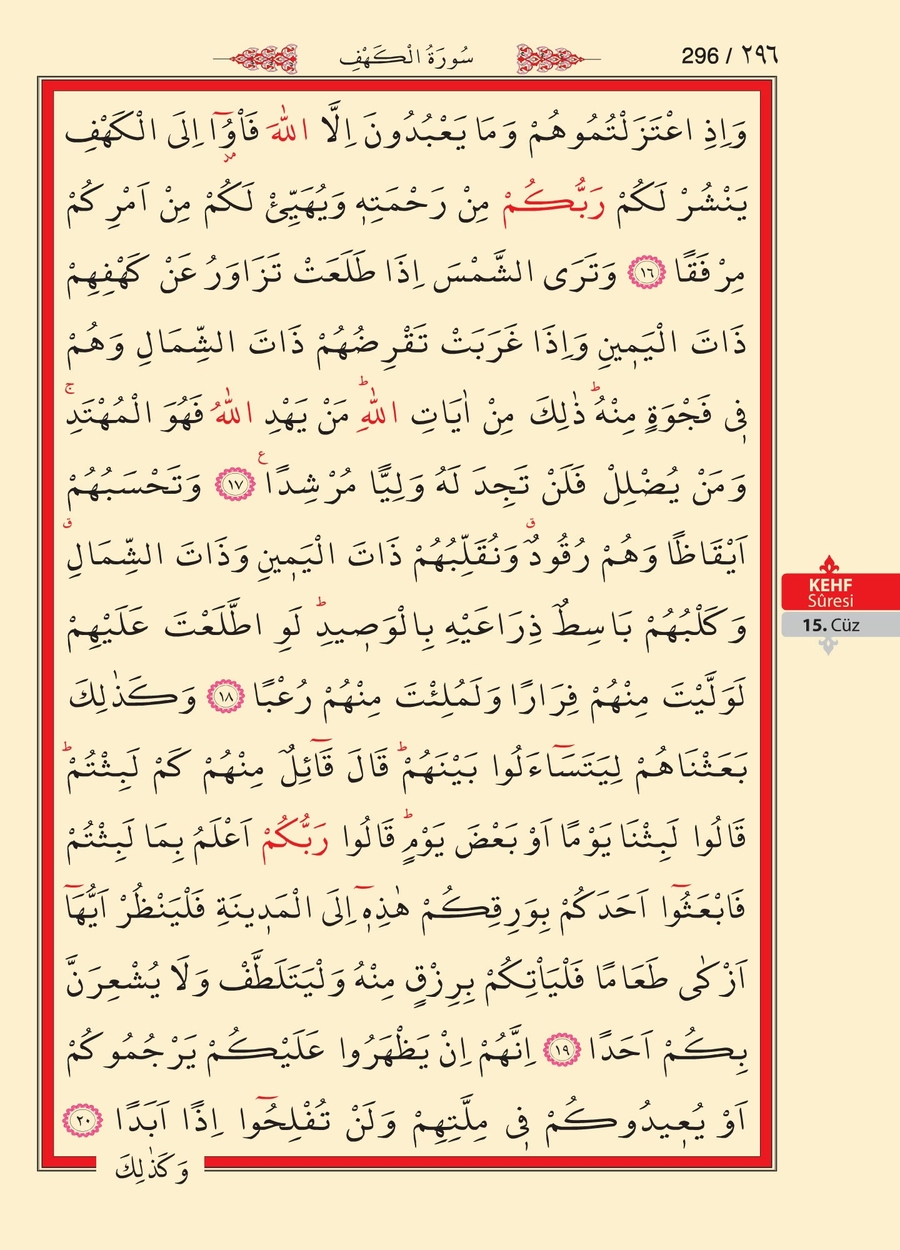 سُورَةُ الْكَهْفِ
296 / ٢٩٦
وَاِذِ اعْتَزَلْتُمُوهُمْ وَمَا يَعْبُدُونَ اِلَّا اللّٰهَ فَأْوُٓا اِلَى الْكَهْفِ
مد
يَنْشُرْ لَكُمْ رَبُّكُمْ مِنْ رَحْمَتِه۪ وَيُهَيِّئْ لَكُمْ مِنْ اَمْرِكُمْ
مِرْفَقًا ﴿١٦﴾ وَتَرَى الشَّمْسَ اِذَا طَلَعَتْ تَزَاوَرُ عَنْ كَهْفِهِمْ
ذَاتَ الْيَم۪ينِ وَاِذَا غَرَبَتْ تَقْرِضُهُمْ ذَاتَ الشِّمَالِ وَهُمْ
ف۪ي فَجْوَةٍ مِنْهُۜ ذٰلِكَ مِنْ اٰيَاتِ اللّٰهِۜ مَنْ يَهْدِ اللّٰهُ فَهُوَ الْمُهْتَدِۚ
وَمَنْ يُضْلِلْ فَلَنْ تَجِدَ لَهُ وَلِيًّا مُرْشِدًا ع ﴿١٧﴾ وَتَحْسَبُهُمْ
اَيْقَاظًا وَهُمْ رُقُودٌۗ وَنُقَلِّبُهُمْ ذَاتَ الْيَم۪ينِ وَذَاتَ الشِّمَالِۗ
وَكَلْبُهُمْ بَاسِطٌ ذِرَاعَيْهِ بِالْوَص۪يدِۜ لَوِ اطَّلَعْتَ عَلَيْهِمْ
لَوَلَّيْتَ مِنْهُمْ فِرَارًا وَلَمُلِئْتَ مِنْهُمْ رُعْبًا ﴿١٨﴾ وَكَذٰلِكَ
بَعَثْنَاهُمْ لِيَتَسَٓاءَلُوا بَيْنَهُمْۜ قَالَ قَٓائِلٌ مِنْهُمْ كَمْ لَبِثْتُمْۜ
قَالُوا لَبِثْنَا يَوْمًا اَوْ بَعْضَ يَوْمٍۜ قَالُوا رَبُّكُمْ اَعْلَمُ بِمَا لَبِثْتُمْ
فَابْعَثُٓوا اَحَدَكُمْ بِوَرِقِكُمْ هٰذِه۪ٓ اِلَى الْمَد۪ينَةِ فَلْيَنْظُرْ اَيُّهَٓا
اَزْكٰى طَعَامًا فَلْيَأْتِكُمْ بِرِزْقٍ مِنْهُ وَلْيَتَلَطَّفْ وَلَا يُشْعِرَنَّ
بِكُمْ اَحَدًا ﴿١٩﴾ اِنَّهُمْ اِنْ يَظْهَرُوا عَلَيْكُمْ يَرْجُمُوكُمْ
اَوْ يُع۪يدُوكُمْ ف۪ي مِلَّتِهِمْ وَلَنْ تُفْلِحُٓوا اِذًا اَبَدًا ﴿٢٠﴾
وَكَذٰلِكَ
KEHF
Sûresi
15. Cüz